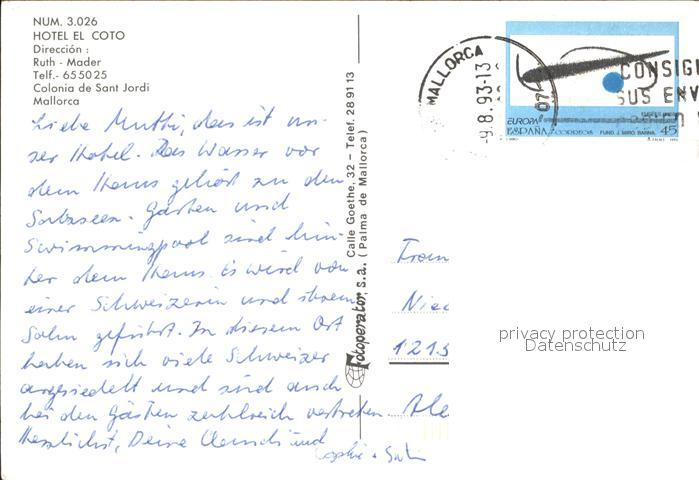 NUM. 3.026
HOTEL EL COTO
Dirección :
Ruth - Mader
Telf.- 655025
Colonia de Sant Jordi
Mallorca
Liebe Mutti, das ist un-
ser Hotel. Das Wasser vor
dem Haus gehört zu den
Salzseen. Garten und
Swimmingpool sind hin-
ter dem Haus. Es wird von
einer Schweizerin und ihrem
Sohn geführt. In diesem Ort
haben sich viele Schweizer
angesiedelt und sind auch
bei den Gästen zahlreich vertreten.
Herzlichst, Deine und
Sophie +
Fotoperator, s.a. Calle Goethe, 32 - Telef. 28 91 13
(Palma de Mallorca)
MALLORCA
-9.8.93-13
070
CONSIG
SUS ENV
EUROPA
ESPAÑA CORREOS FUND. J. MIRO. BARNA. 45
Frau
Nie
1215
Ale
privacy protection
Datenschutz